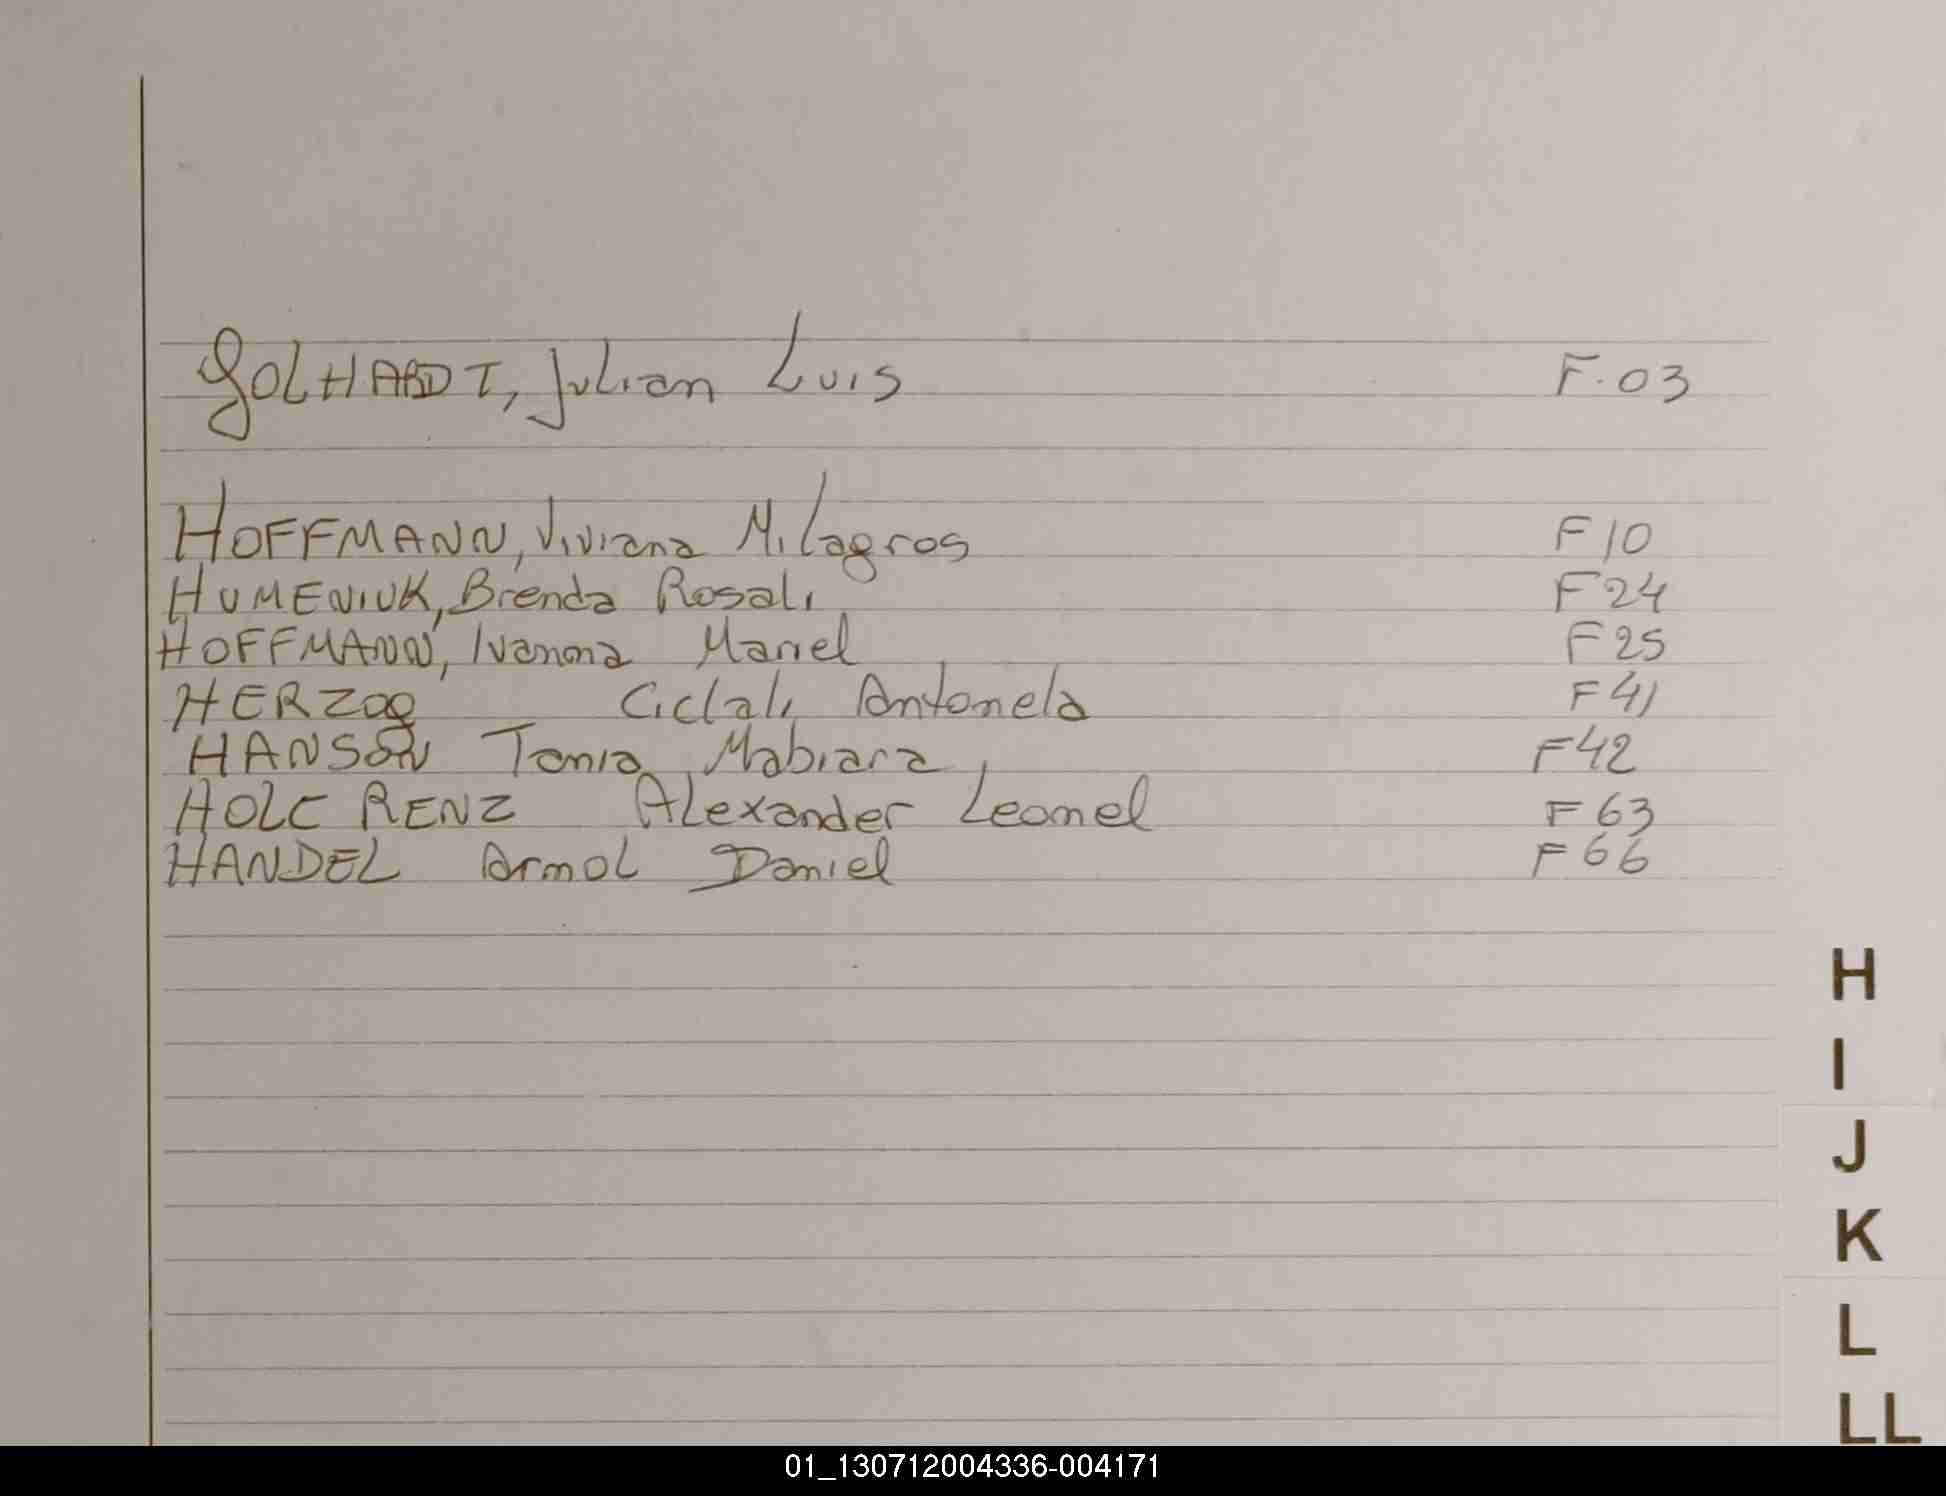 GOLHARDT, Julian Luis F.03
HOFFMANN, Viviana Milagros F10
HUMENIUK, Brenda Rosali F24
HOFFMANN, Ivanna Mariel F25
HERZOG Ciclali Antonela F41
HANSON Tania Mabiara F42
HOLC RENZ Alexander Leonel F63
HANDEL Arnol Daniel F66
H
I
J
K
L
LL
01_130712004336-004171